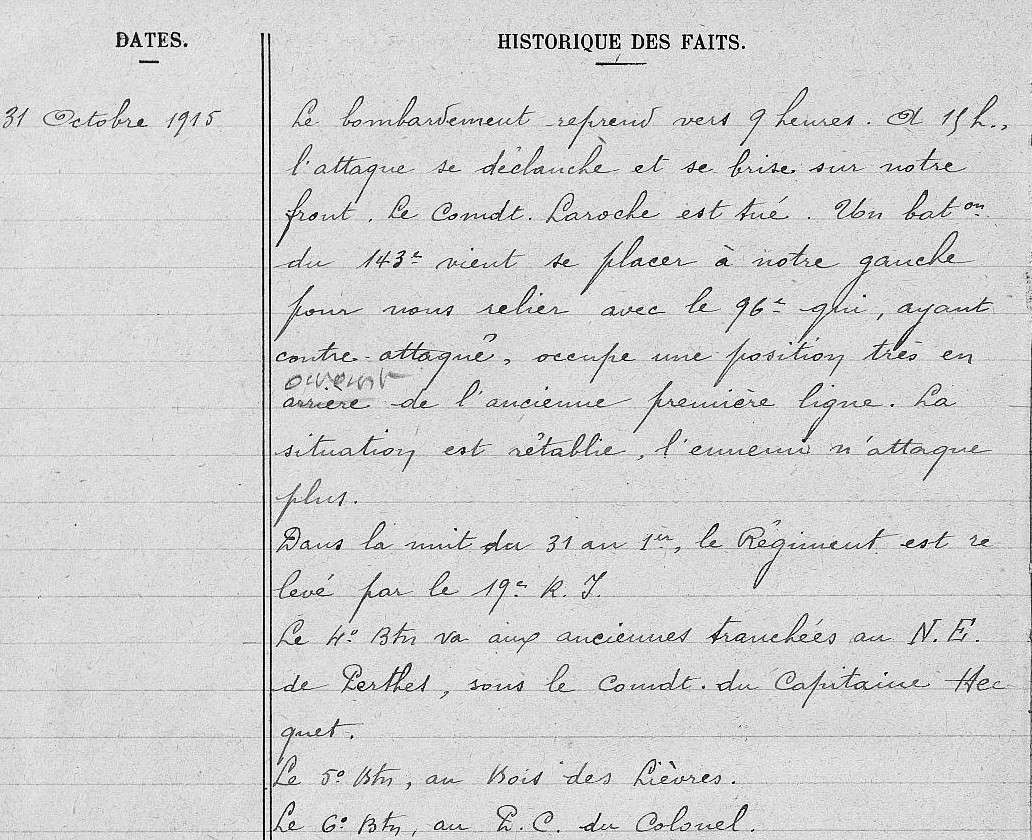 DATES.
HISTORIQUE DES FAITS.
31 Octobre 1915
Le bombardement reprend vers 9 heures. A 15 h.,
l'attaque se déclanche et se brise sur notre
front. Le Comdt. Laroche est tué. Un bat on.
du 143e vient se placer à notre gauche
pour nous relier avec le 96e qui, ayant
contre-attaqué, occupe une position très en
avant
arrière de l'ancienne première ligne. La
situation est rétablie, l'ennemi n'attaque
plus.
Dans la nuit du 31 au 1er, le Régiment est re
levé par le 19e R.I.
Le 4e Btn va aux anciennes tranchées au N.E.
de Perthes, sous le Comdt. du Capitaine Hec
quet.
Le 5e Btn, au Bois des Lièvres.
Le 6e Btn, au P.C. du Colonel.